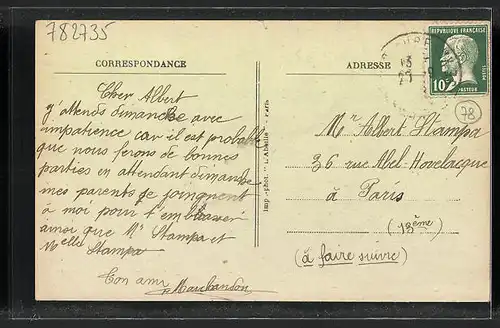 782735
CORRESPONDANCE
ADRESSE
REPUBLIQUE FRANÇAISE
POSTES
10c
PASTEUR
13
78
Cher Albert
J'attends dimanche avec
impatience car il est probable
que nous ferons de bonnes
parties en attendant dimanche
mes parents se joingnent
à moi pour t'embrasser
ainsi que Mr Stampa et
Melle Stampa
Ton ami
Marchandon
Imp.-phot. "L'Abeille" - Paris
Mr Albert Stampa
36 rue Abel-Hovelacque
à Paris
(13ème)
(à faire suivre)